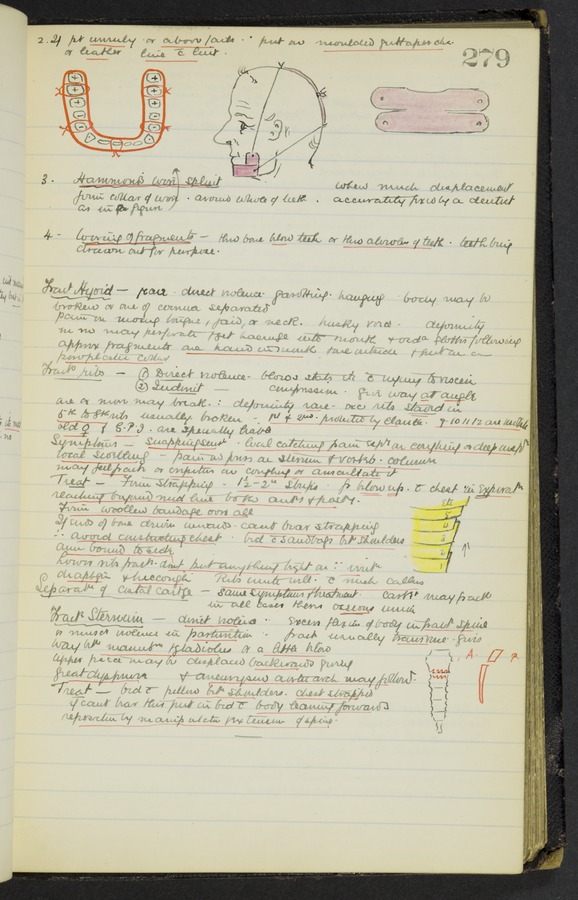 279
2. If pt unruly or above fails ∴ put on moulded guttapercha
or leather line c̄ lint.
3. Hammond's wire splint when much displacement
form collar of wire around whole of teeth. accurately fixed by a dentist
as in figure
4 - Wiring of fragments - thro bone below teeth or thro alveolus of teeth. teeth being
drawn out for purpose.
Fract Hyoid - rare direct violence garotting. hanging body may be
broken or one of cornua separated
Pain on moving tongue, jaw, or neck. husky voice. deformity
may perforate & get haemage into mouth & oeda glottis following
approx fragments one hand in mouth one outside & put on a
poroplastic collar
Fract ribs - (1) Direct violence. blows stabs etc c̄ injury to viscera
(2) Indirect - compression. give way at angle
one or more may break ∴ deformity rare. occ ribs staved in
5th to 8th ribs usually broken. 1st & 2nd protected by clavicle. & 10 11 12 are
old & G.P.I. are specially liable
Symptoms - snapping local catching pain on coughing or deep
local swelling - pain on press on sternum & vertb. column
may feel fract or crepitus on coughing or auscultate it
Treat - Firm strapping. 1½-2" strips fr below up. c̄ chest in expirat
reaching beyond mid line both ant & post.
Firm woollen bandage over all
If ends of bone driven inwards cant bear strapping
∴ avoid constricting chest bed c̄ sandbags bt shoulders
arm bound to side
lower ribs fract. dont put anything tight on ∴
diaphgm & hiccough Ribs unite well c̄ much callus
Separatn of costal cartge - same symptoms & treatment. cart may fract
in all cases there osseous union
Fract Sternum - direct violence excess flexion of body in fract spine
or muscr violence in parturition. fract usually transverse. gives
way bt manubm & gladiolus or a little below
upper piece may be displaced backwards giving
great dyspnoea & aneurysms aorta arch may follow.
Treat - bed c̄ pillow bt shoulders. chest strapped
if cant bear this put in bed c̄ body leaning forwards
reposition by manipulatn & extension of spine.
A. R